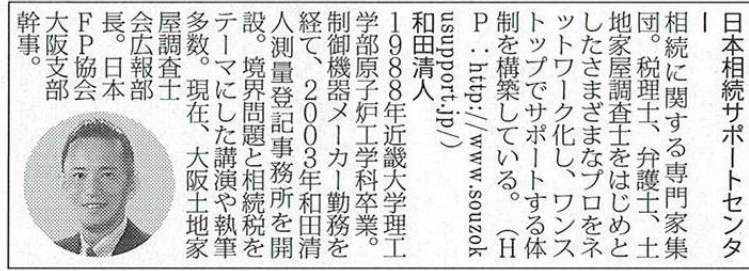 日本相続サポートセンタ
ー
相続に関する専門家集
団。税理士、弁護士、土
地家屋調査士をはじめと
したさまざまなプロをネ
ットワーク化し、ワンス
トップでサポートする体
制を構築している。（H
P：http://www.souzok
usupport.jp/）
和田清人
1988年近畿大学理工
学部原子炉工学科卒業。
制御機器メーカー勤務を
経て、2003年和田清
人測量登記事務所を開
設。境界問題と相続税を
テーマにした講演や執筆
多数。現在、大阪土地家
屋調査士
会広報部
長。日本
FP協会
大阪支部
幹事。